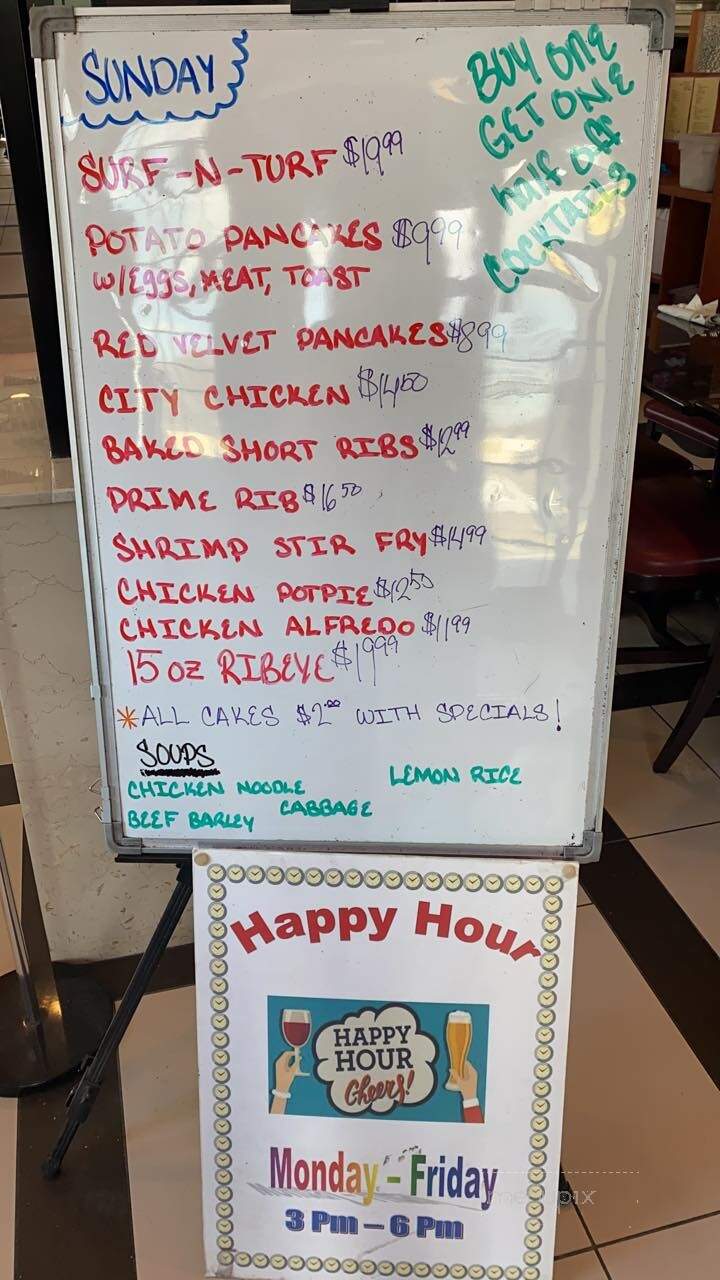 SUNDAY
BUY ONE
GET ONE
half off
COCKTAILS
SURF-N-TURF $19.99
POTATO PANCAKES $9.99
W/EGGS, MEAT, TOAST
RED VELVET PANCAKES $8.99
CITY CHICKEN $14.50
BAKED SHORT RIBS $12.99
PRIME RIB $16.50
SHRIMP STIR FRY $14.99
CHICKEN POTPIE $12.50
CHICKEN ALFREDO $11.99
15 oz RIBEYE $19.99
*ALL CAKES $2.00 WITH SPECIALS!
SOUPS
CHICKEN NOODLE
LEMON RICE
BEEF BARLEY
CABBAGE
Happy Hour
HAPPY
HOUR
Cheers!
Monday - Friday
3 Pm – 6 Pm